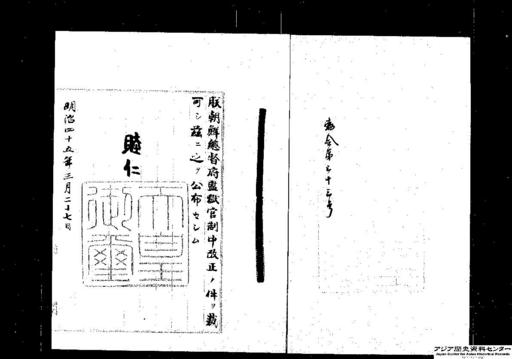 勅令第三十三号
朕朝鮮総督府監獄官制中改正ノ件ヲ裁
可シ茲ニ之ヲ公布セシム
睦仁
天皇御璽
明治四十五年三月二十七日
アジア歴史資料センター
Japan Center for Asian Historical Records